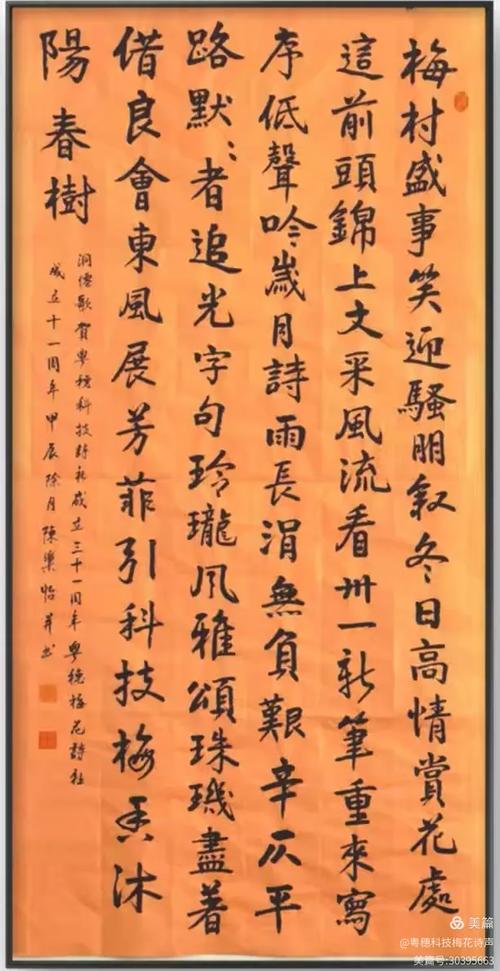 梅村盛事笑迎騷朋叙冬日高情賞花處
這前頭錦上文采風流看卅一新筆重來寫
序低聲吟歲月詩雨長涓無負艱辛仄平
路默〻者追光字句玲瓏風雅頌珠璣盡著
借良會東風展芳菲引科技梅香沐
陽春樹
洞僊歌賀粵穗科技詩社成立三十一周年粵穗梅花詩社
成立十一周年甲辰除月陳樂怡并书
美篇
@粤穗科技梅花诗声
美篇号:30395663